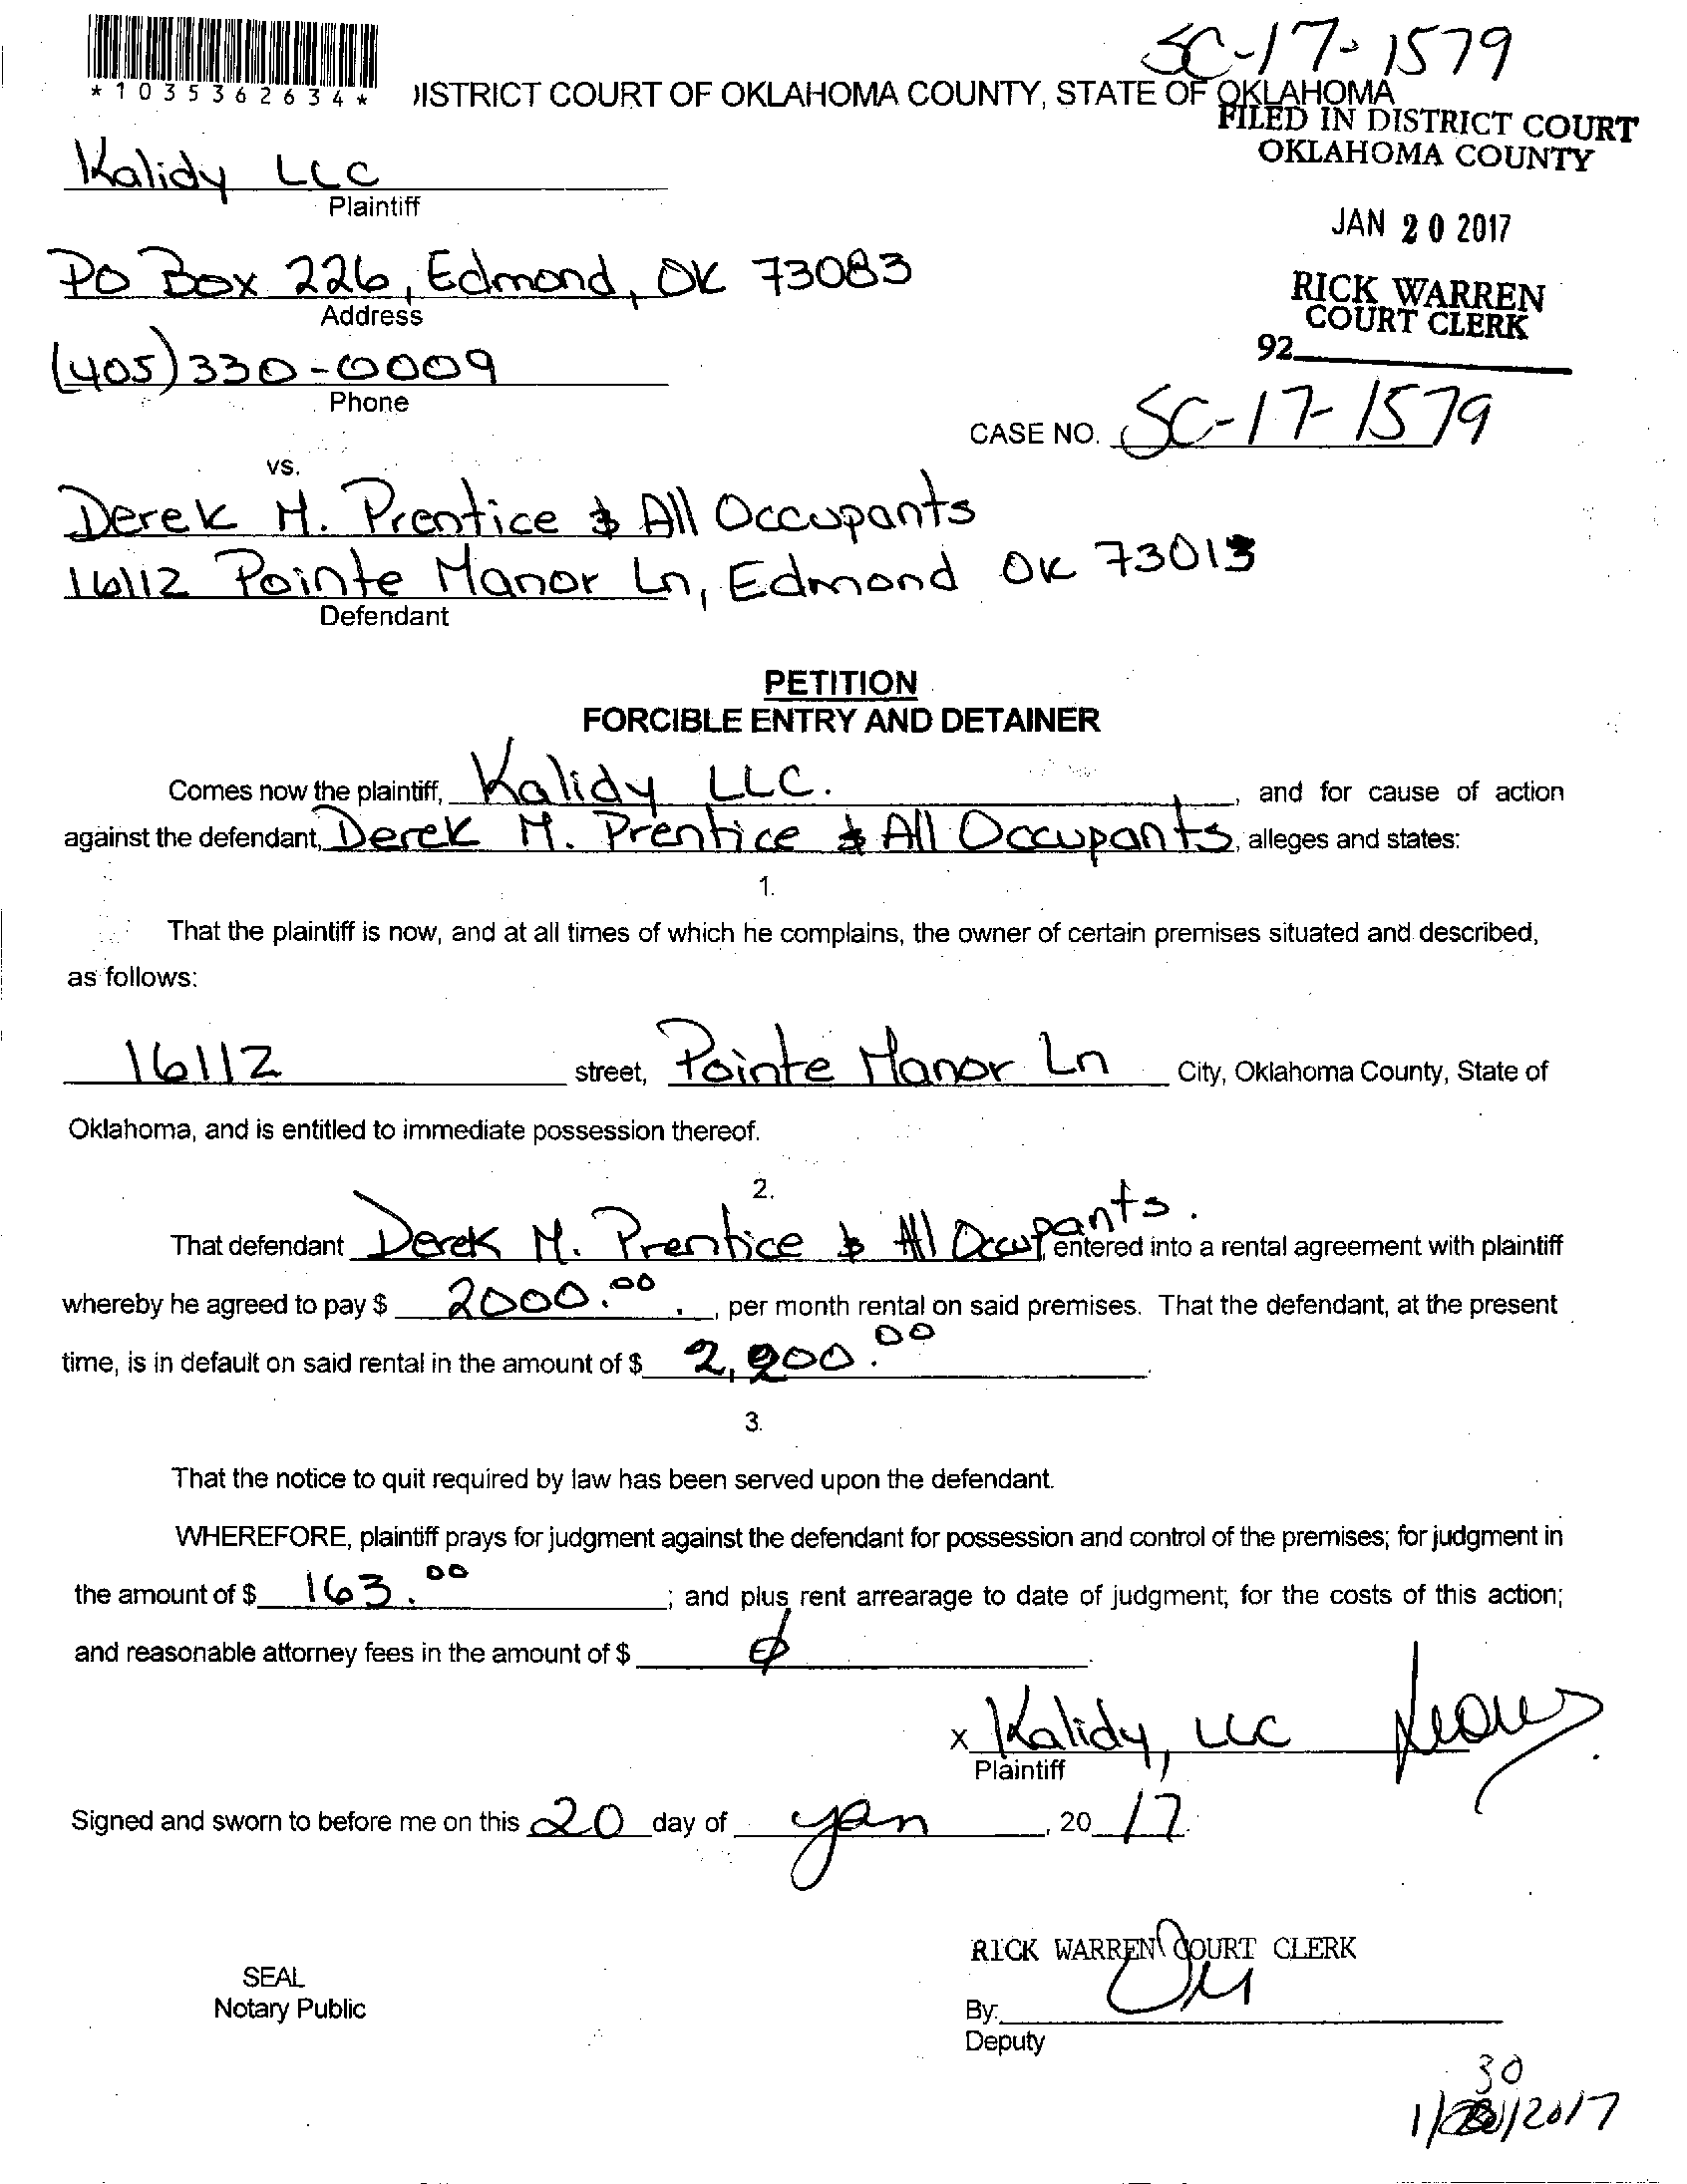 SC-17-1579
*1035362634*
DISTRICT COURT OF OKLAHOMA COUNTY, STATE OF OKLAHOMA
FILED IN DISTRICT COURT
OKLAHOMA COUNTY
Kalidy LLC
Plaintiff
JAN 20 2017
PO Box 226, Edmond, OK 73083
Address
RICK WARREN
COURT CLERK
92
(405) 330-0009
Phone
CASE NO. SC-17-1579
vs.
Derek M. Prentice & All Occupants
16112 Pointe Manor Ln, Edmond OK 73013
Defendant
PETITION
FORCIBLE ENTRY AND DETAINER
Comes now the plaintiff, Kalidy LLC. , and for cause of action
against the defendant, Derek M. Prentice & All Occupants, alleges and states:
1.
That the plaintiff is now, and at all times of which he complains, the owner of certain premises situated and described,
as follows:
16112 street, Pointe Manor Ln City, Oklahoma County, State of
Oklahoma, and is entitled to immediate possession thereof.
2.
That defendant Derek M. Prentice & All Occupants. entered into a rental agreement with plaintiff
whereby he agreed to pay $ 2000.00 , per month rental on said premises. That the defendant, at the present
time, is in default on said rental in the amount of $ 2,200.00 .
3.
That the notice to quit required by law has been served upon the defendant.
WHEREFORE, plaintiff prays for judgment against the defendant for possession and control of the premises; for judgment in
the amount of $ 163.00 ; and plus rent arrearage to date of judgment; for the costs of this action;
and reasonable attorney fees in the amount of $ ∅ .
x Kalidy, LLC
Plaintiff
Signed and sworn to before me on this 20 day of Jan , 20 17.
RICK WARREN COURT CLERK
SEAL
Notary Public
By:
Deputy
30
1/ /2017